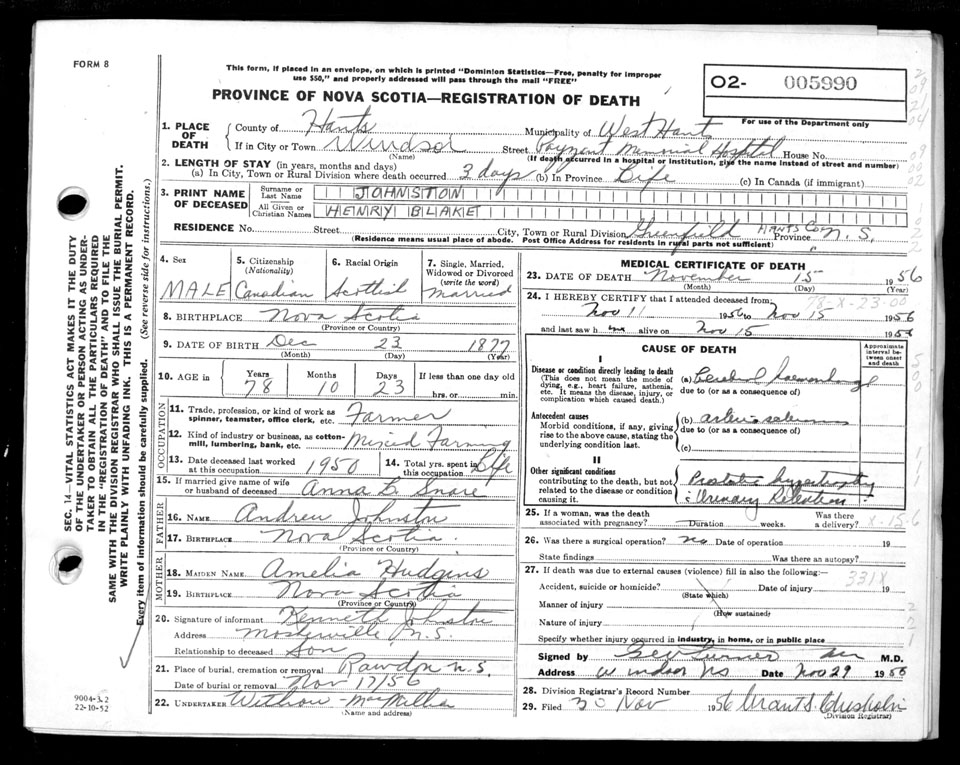 FORM 8
This form, if placed in an envelope, on which is printed "Dominion Statistics—Free, penalty for improper
use $50," and properly addressed will pass through the mail "FREE"
O2- 005990
PROVINCE OF NOVA SCOTIA—REGISTRATION OF DEATH
For use of the Department only
1. PLACE OF DEATH
County of Hants Municipality of West Hants
If in City or Town Windsor Street Payzant Memorial Hospital House No.
(Name) (If death occurred in a hospital or institution, give the name instead of street and number)
2. LENGTH OF STAY (in years, months and days)
(a) In City, Town or Rural Division where death occurred 3 days (b) In Province Life (c) In Canada (if immigrant)
3. PRINT NAME OF DECEASED
Surname or Last Name JOHNSTON
All Given or Christian Names HENRY BLAKE
RESIDENCE No. Street City, Town or Rural Division Greenfield Hants Co. Province N.S.
(Residence means usual place of abode. Post Office Address for residents in rural parts not sufficient)
4. Sex MALE
5. Citizenship (Nationality) Canadian
6. Racial Origin Scottish
7. Single, Married, Widowed or Divorced (write the word) Married
8. BIRTHPLACE Nova Scotia
(Province or Country)
9. DATE OF BIRTH Dec 23 1877
(Month) (Day) (Year)
10. AGE in Years 78 Months 10 Days 23 If less than one day old hrs. or min.
OCCUPATION
11. Trade, profession, or kind of work as spinner, teamster, office clerk, etc. Farmer
12. Kind of industry or business, as cotton-mill, lumbering, bank, etc. Mixed Farming
13. Date deceased last worked at this occupation 1950
14. Total yrs. spent in this occupation Life
15. If married give name of wife or husband of deceased Anna B. Snare
FATHER
16. NAME Andrew Johnston
17. BIRTHPLACE Nova Scotia
(Province or Country)
MOTHER
18. MAIDEN NAME Amelia Hudgins
19. BIRTHPLACE Nova Scotia
(Province or Country)
20. Signature of informant Kenneth Johnston
Address Mosherville N.S.
Relationship to deceased Son
21. Place of burial, cremation or removal Rawdon N.S.
Date of burial or removal Nov 17/56
22. UNDERTAKER Withrow - MacMillan
(Name and address)
MEDICAL CERTIFICATE OF DEATH
23. DATE OF DEATH November 15 1956
(Month) (Day) (Year)
78-X-23-00
24. I HEREBY CERTIFY that I attended deceased from:
Nov 11 1956 to Nov 15 1956
and last saw him alive on Nov 15 1956
CAUSE OF DEATH
Approximate interval between onset and death
I
Disease or condition directly leading to death
(This does not mean the mode of dying, e.g., heart failure, asthenia, etc. It means the disease, injury, or complication which caused death.)
(a) Cerebral haemorrhage
due to (or as a consequence of)
Antecedent causes
Morbid conditions, if any, giving rise to the above cause, stating the underlying condition last.
(b)
due to (or as a consequence of)
(c)
II
Other significant conditions contributing to the death, but not related to the disease or condition causing it.
Prostatic hypertrophy
Urinary Retention
25. If a woman, was the death associated with pregnancy? Duration weeks. Was there a delivery?
X-15-6
26. Was there a surgical operation? no Date of operation 19
State findings Was there an autopsy?
27. If death was due to external causes (violence) fill in also the following:—
331X
Accident, suicide or homicide? Date of injury 19
(State which)
Manner of injury
(How sustained)
Nature of injury
Specify whether injury occurred in industry, in home, or in public place
Signed by Geo Turner M.D.
Address Windsor NS Date Nov 29 1956
28. Division Registrar's Record Number
29. Filed 30 Nov 1956 Grant S. Chisholm
(Division Registrar)
SEC. 14—VITAL STATISTICS ACT MAKES IT THE DUTY
OF THE UNDERTAKER OR PERSON ACTING AS UNDER-
TAKER TO OBTAIN ALL THE PARTICULARS REQUIRED
IN THE "REGISTRATION OF DEATH" AND TO FILE THE
SAME WITH THE DIVISION REGISTRAR WHO SHALL ISSUE THE BURIAL PERMIT.
WRITE PLAINLY WITH UNFADING INK. THIS IS A PERMANENT RECORD.
Every item of information should be carefully supplied. (See reverse side for instructions.)
9004-3.2
22-10-52